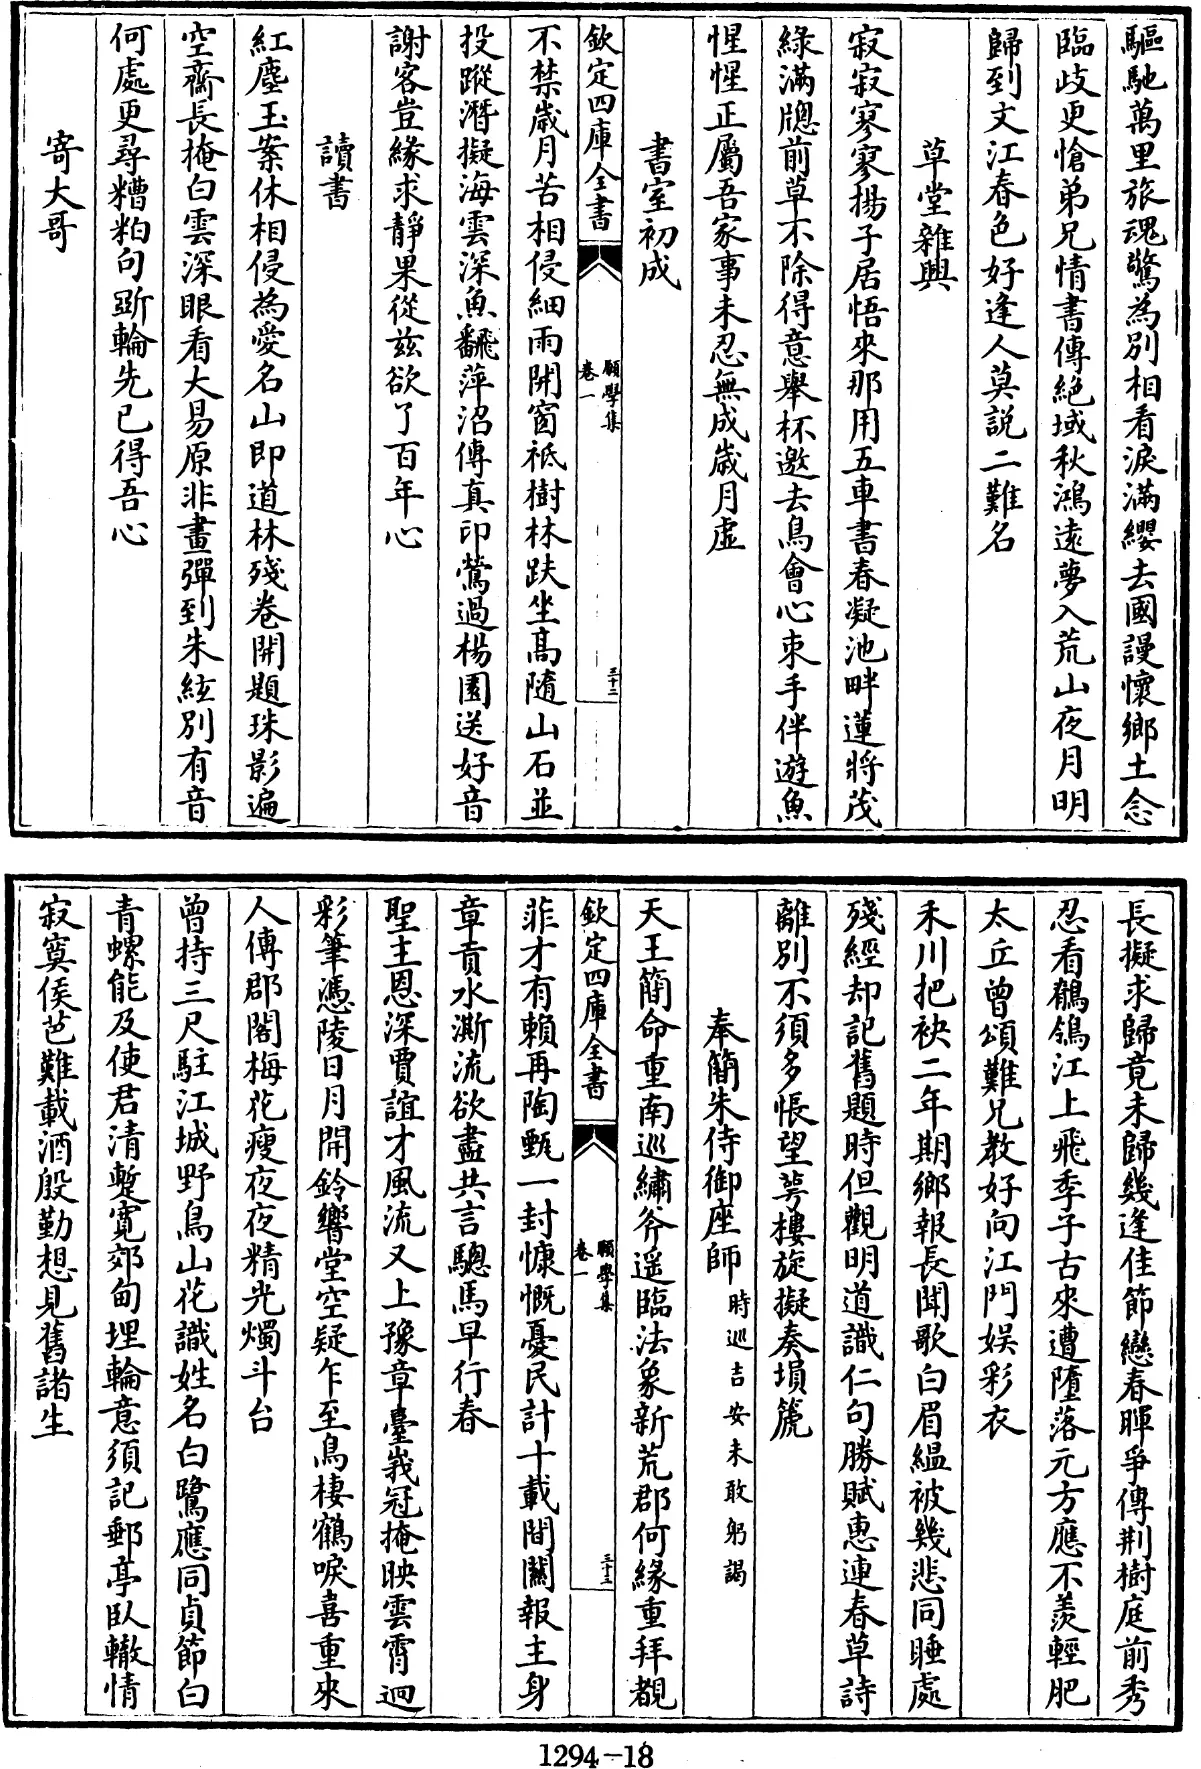 驅馳萬里旅魂驚為別相看淚滿纓去國謾懷鄉土念
臨歧更愴弟兄情書傳絕域秋鴻遠夢入荒山夜月明
歸到文江春色好逢人莫說二難名
草堂雜興
寂寂寥寥揚子居悟來那用五車書春凝池畔蓮將茂
綠滿牕前草不除得意舉杯邀去鳥會心束手伴遊魚
惺惺正屬吾家事未忍無成歲月虛
書室初成
欽定四庫全書
願學集
卷一
三十二
不禁歲月苦相侵細雨開窗祗樹林趺坐髙隨山石並
投蹤潛擬海雲深魚飜萍沼傳真印鶯過楊園送好音
謝客豈緣求靜果從兹欲了百年心
讀書
紅塵玉案休相侵為愛名山即道林殘卷開題珠影遍
空齋長掩白雲深眼看大易原非畫彈到朱絃別有音
何處更尋糟粕句斲輪先已得吾心
寄大哥
長擬求歸竟未歸幾逢佳節戀春暉爭傳荆樹庭前秀
忍看鶺鴒江上飛季子古來遭墮落元方應不羨輕肥
太丘曾頌難兄教好向江門娱彩衣
禾川把袂二年期鄉報長聞歌白眉緼被幾悲同睡處
殘經却記舊題時但觀明道識仁句勝賦惠連春草詩
離別不須多悵望萼樓旋擬奏塤箎
奉簡朱侍御座師時巡吉安未敢躬謁
天王簡命重南巡繡斧遥臨法象新荒郡何緣重拜覩
欽定四庫全書
願學集
卷一
三十三
菲才有賴再陶甄一封慷慨憂民計十載間關報主身
章貢水澌流欲盡共言驄馬早行春
聖主恩深賈誼才風流又上豫章臺峩冠掩映雲霄迥
彩筆憑陵日月開鈴響堂空疑乍至鳥棲鶴唳喜重來
人傳郡閣梅花瘦夜夜精光燭斗台
曾持三尺駐江城野鳥山花識姓名白鷺應同貞節白
青螺能及使君清蹔寛郊甸埋輪意須記郵亭臥轍情
寂寞侯芭難載酒殷勤想見舊諸生
1294-18